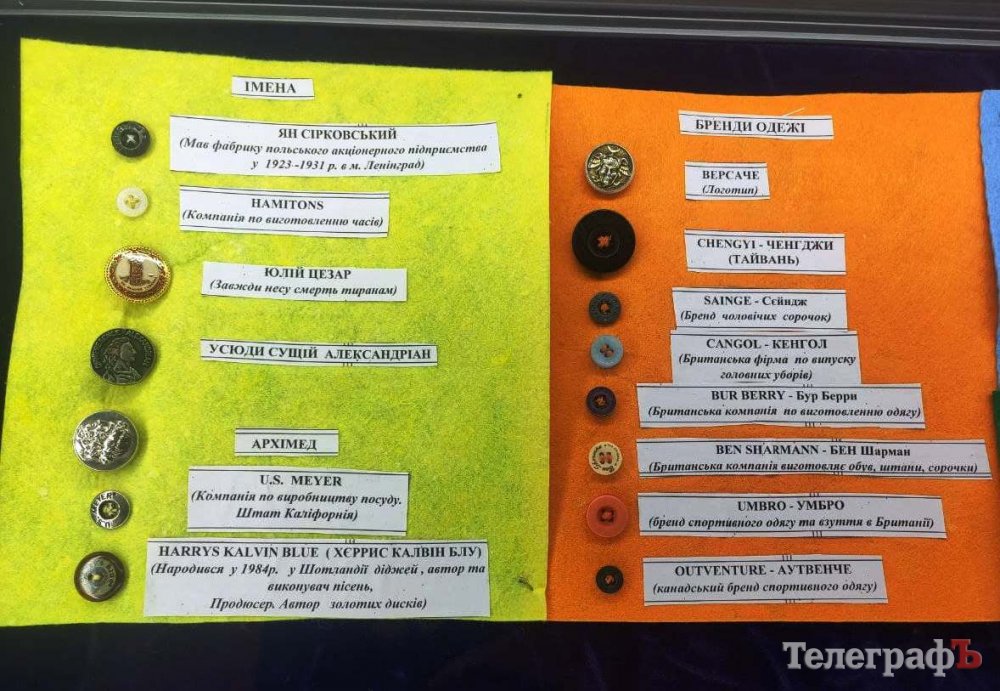 ІМЕНА
ЯН СІРКОВСЬКИЙ
(Мав фабрику польського акціонерного підприємства
у 1923-1931 р. в м. Ленінград)
HAMITONS
(Компанія по виготовленню часів)
ЮЛІЙ ЦЕЗАР
(Завжди несу смерть тиранам)
УСЮДИ СУЩІЙ АЛЕКСАНДРІАН
АРХІМЕД
U.S. MEYER
(Компанія по виробництву посуду.
Штат Каліфорнія)
HARRYS KALVIN BLUE ( ХЄРРИС КАЛВІН БЛУ)
(Народився у 1984р. у Шотландії діджей , автор та
виконувач пісень,
Продюсер. Автор золотих дисків)
БРЕНДИ ОДЕЖІ
ВЕРСАЧЕ
(Логотип)
CHENGYI - ЧЕНГДЖИ
(ТАЙВАНЬ)
SAINGE - Сєйндж
(Бренд чоловічих сорочок)
CANGOL - КЕНГОЛ
(Британська фірма по випуску
головних уборів)
BUR BERRY - Бур Берри
(Британська компанія по виготовленню одягу)
BEN SHARMANN - БЕН Шарман
(Британська компанія виготовляє обув, штани, сорочки)
UMBRO - УМБРО
(бренд спортивного одягу та взуття в Британії)
OUTVENTURE - АУТВЕНЧЕ
(канадський бренд спортивного одягу)
ТелеграфЪ